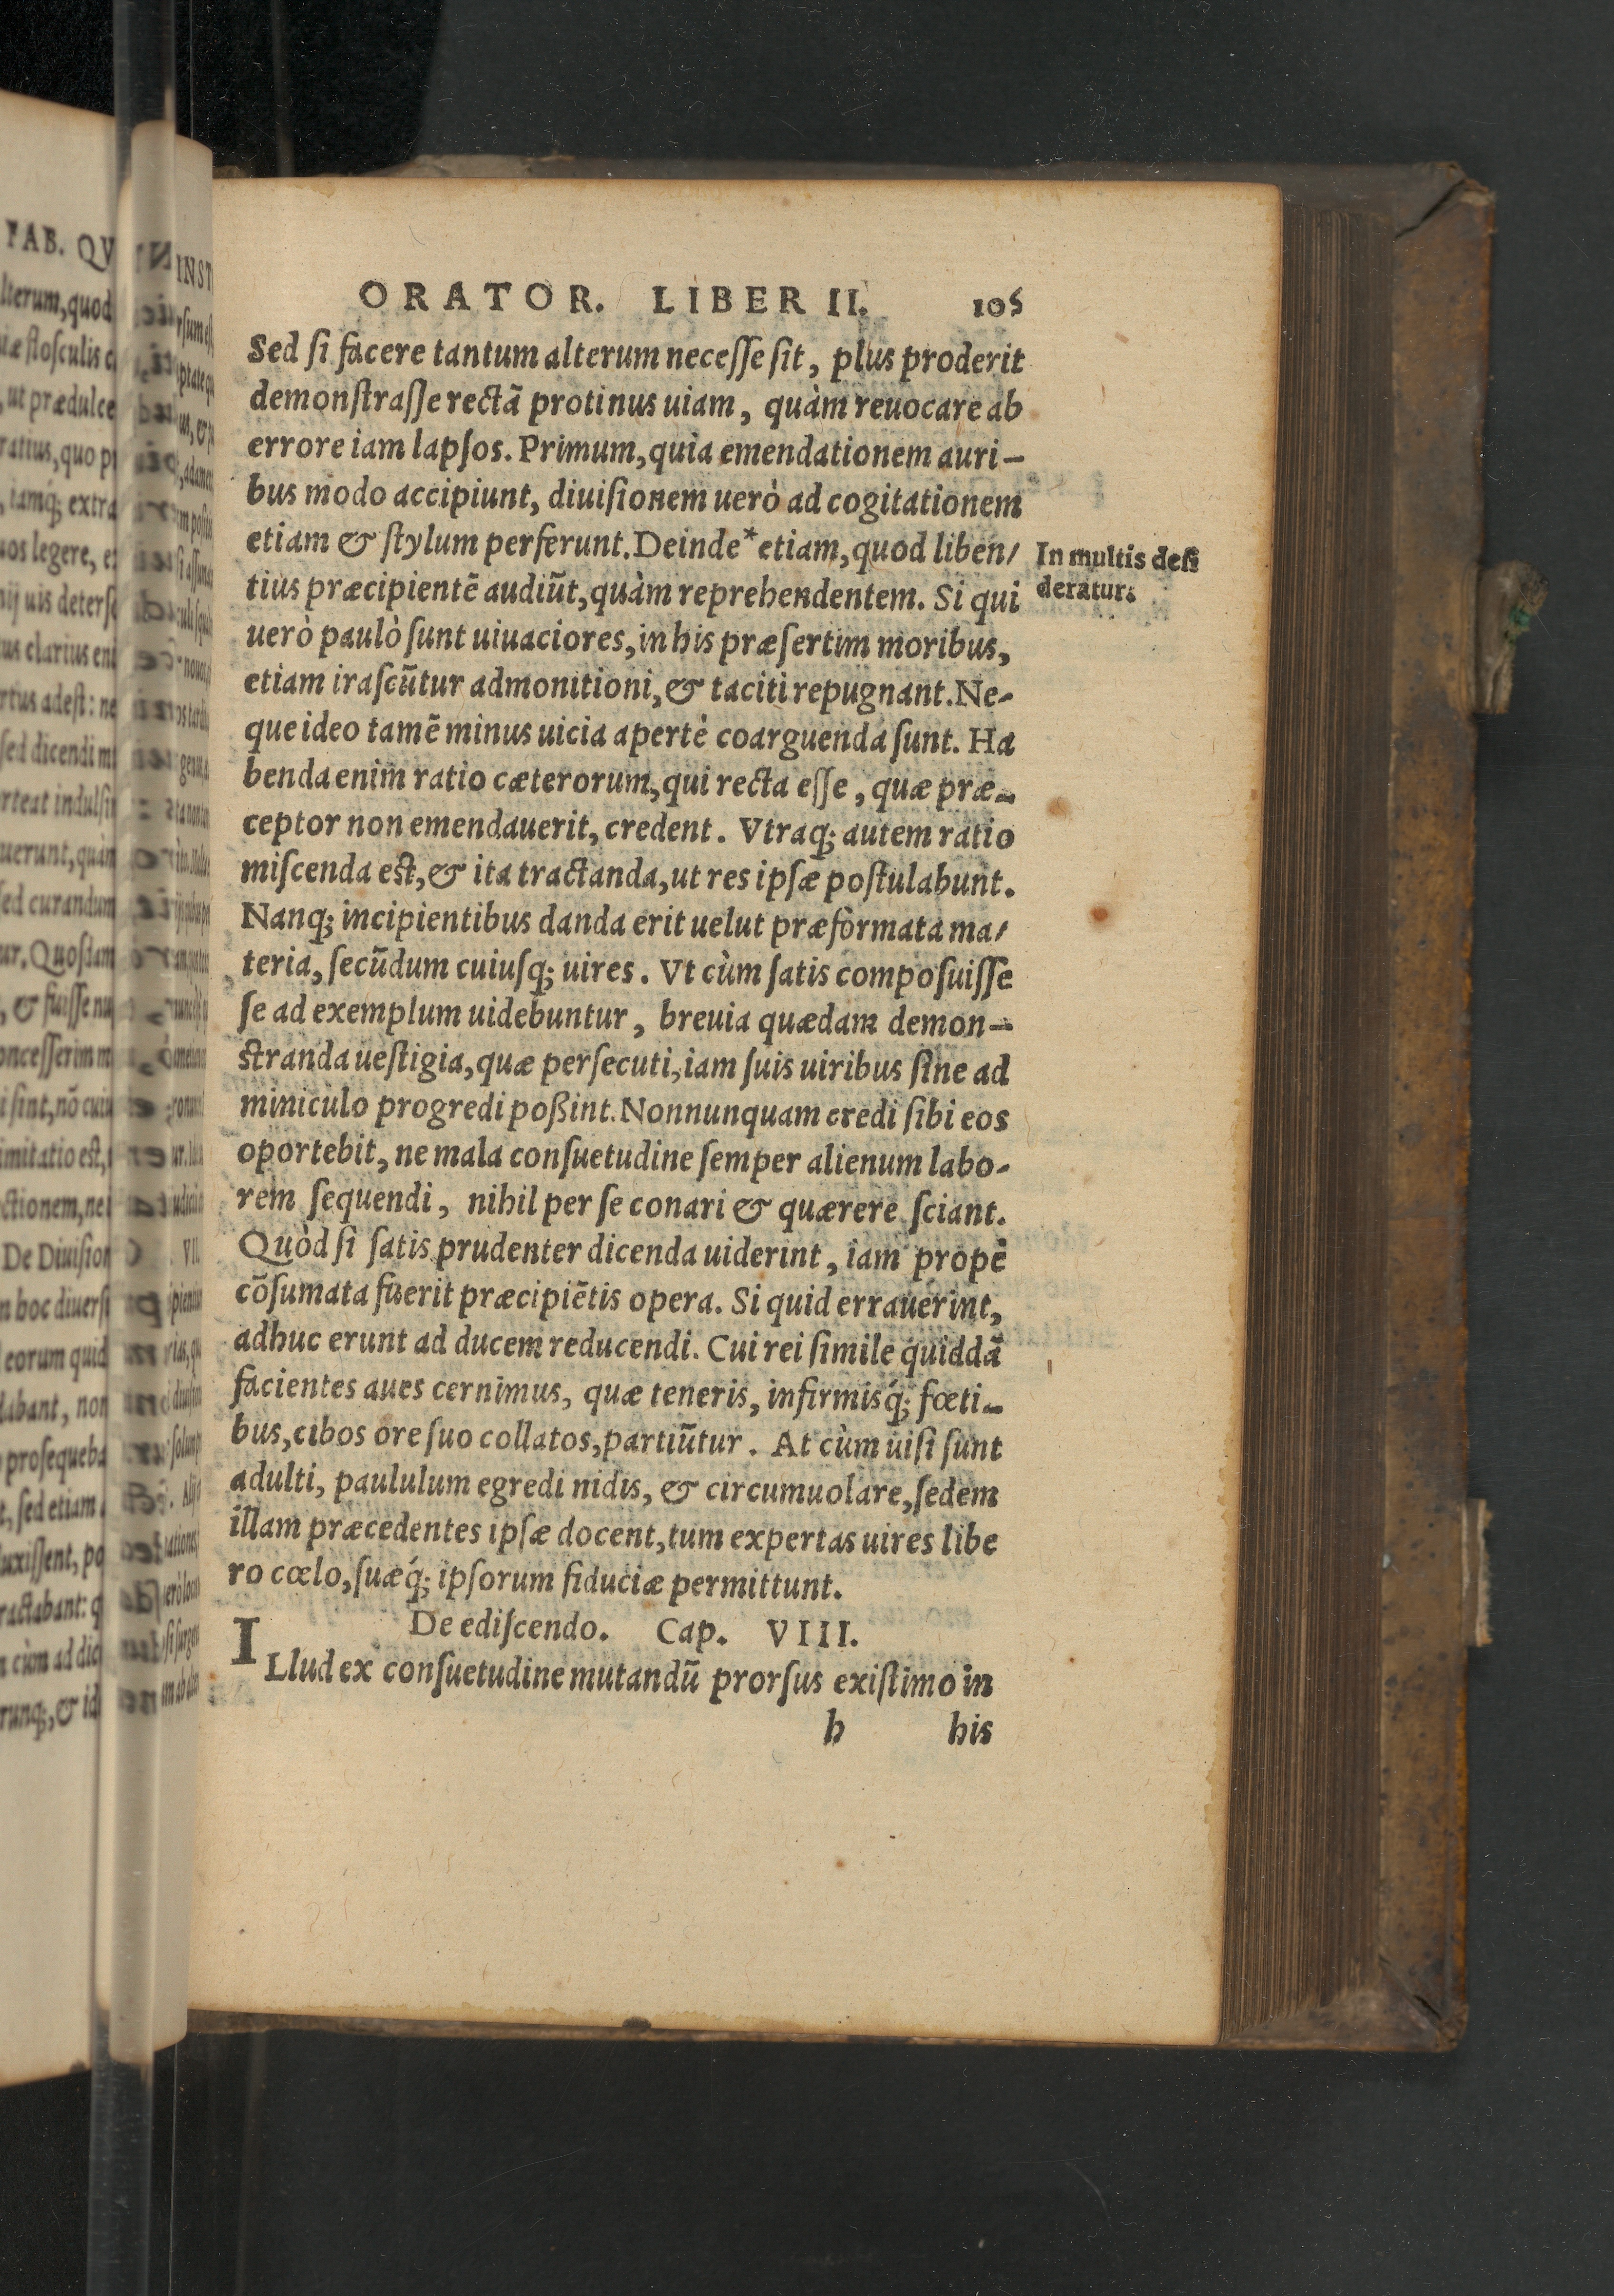 ORATOR. LIBER II. 105
Sed ſi facere tantum alterum neceſſe ſit, plus proderit
demonſtraſſe rectã protinus uiam, quàm reuocare ab
errore iam lapſos. Primum, quia emendationem auri-
bus modo accipiunt, diuiſionem uerò ad cogitationem
etiam & ſtylum perferunt. Deinde* etiam, quod liben/
In multis deſi
tius præcipientẽ audiũt, quàm reprehendentem. Si qui
deratur.
uerò paulò ſunt uiuaciores, in his præſertim moribus,
etiam iraſcũtur admonitioni, & taciti repugnant. Ne-
que ideo tamẽ minus uicia apertè coarguenda ſunt. Ha
benda enim ratio cæterorum, qui recta eſſe, quæ præ-
ceptor non emendauerit, credent. Vtraq; autem ratio
miſcenda eſt, & ita tractanda, ut res ipſæ poſtulabunt.
Nanq; incipientibus danda erit uelut præformata ma/
teria, ſecũdum cuiuſq; uires. Vt cùm ſatis compoſuiſſe
ſe ad exemplum uidebuntur, breuia quædam demon-
ſtranda ueſtigia, quæ perſecuti, iam ſuis uiribus ſine ad
miniculo progredi poßint. Nonnunquam credi ſibi eos
oportebit, ne mala conſuetudine ſemper alienum labo-
rem ſequendi, nihil per ſe conari & quærere ſciant.
Quòd ſi ſatis prudenter dicenda uiderint, iam propè
cõſumata fuerit præcipiẽtis opera. Si quid errauerint,
adhuc erunt ad ducem reducendi. Cui rei ſimile quiddã
facientes aues cernimus, quæ teneris, infirmisq́; fœti-
bus, cibos ore ſuo collatos, partiũtur. At cùm uiſi ſunt
adulti, paululum egredi nidis, & circumuolare, ſedem
illam præcedentes ipſæ docent, tum expertas uires libe
ro cœlo, ſuæq́; ipſorum fiduciæ permittunt.
De ediſcendo. Cap. VIII.
ILlud ex conſuetudine mutandũ prorſus exiſtimo in
h his